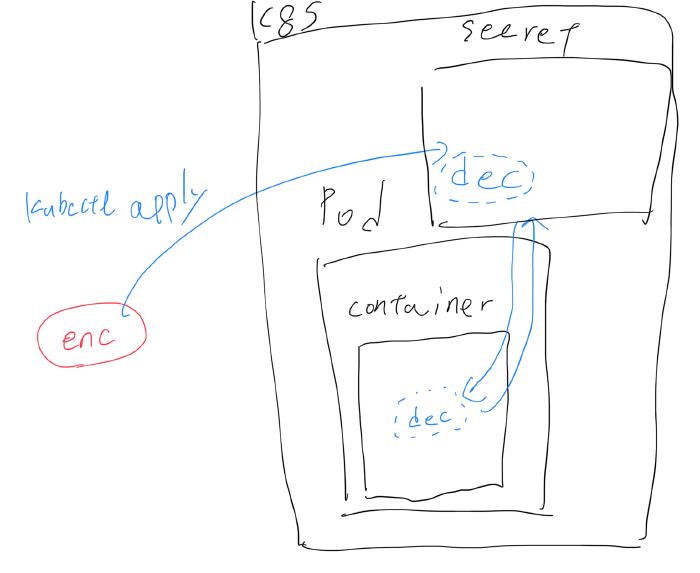 k8s
secret
dec
kubectl apply
Pod
enc
container
dec